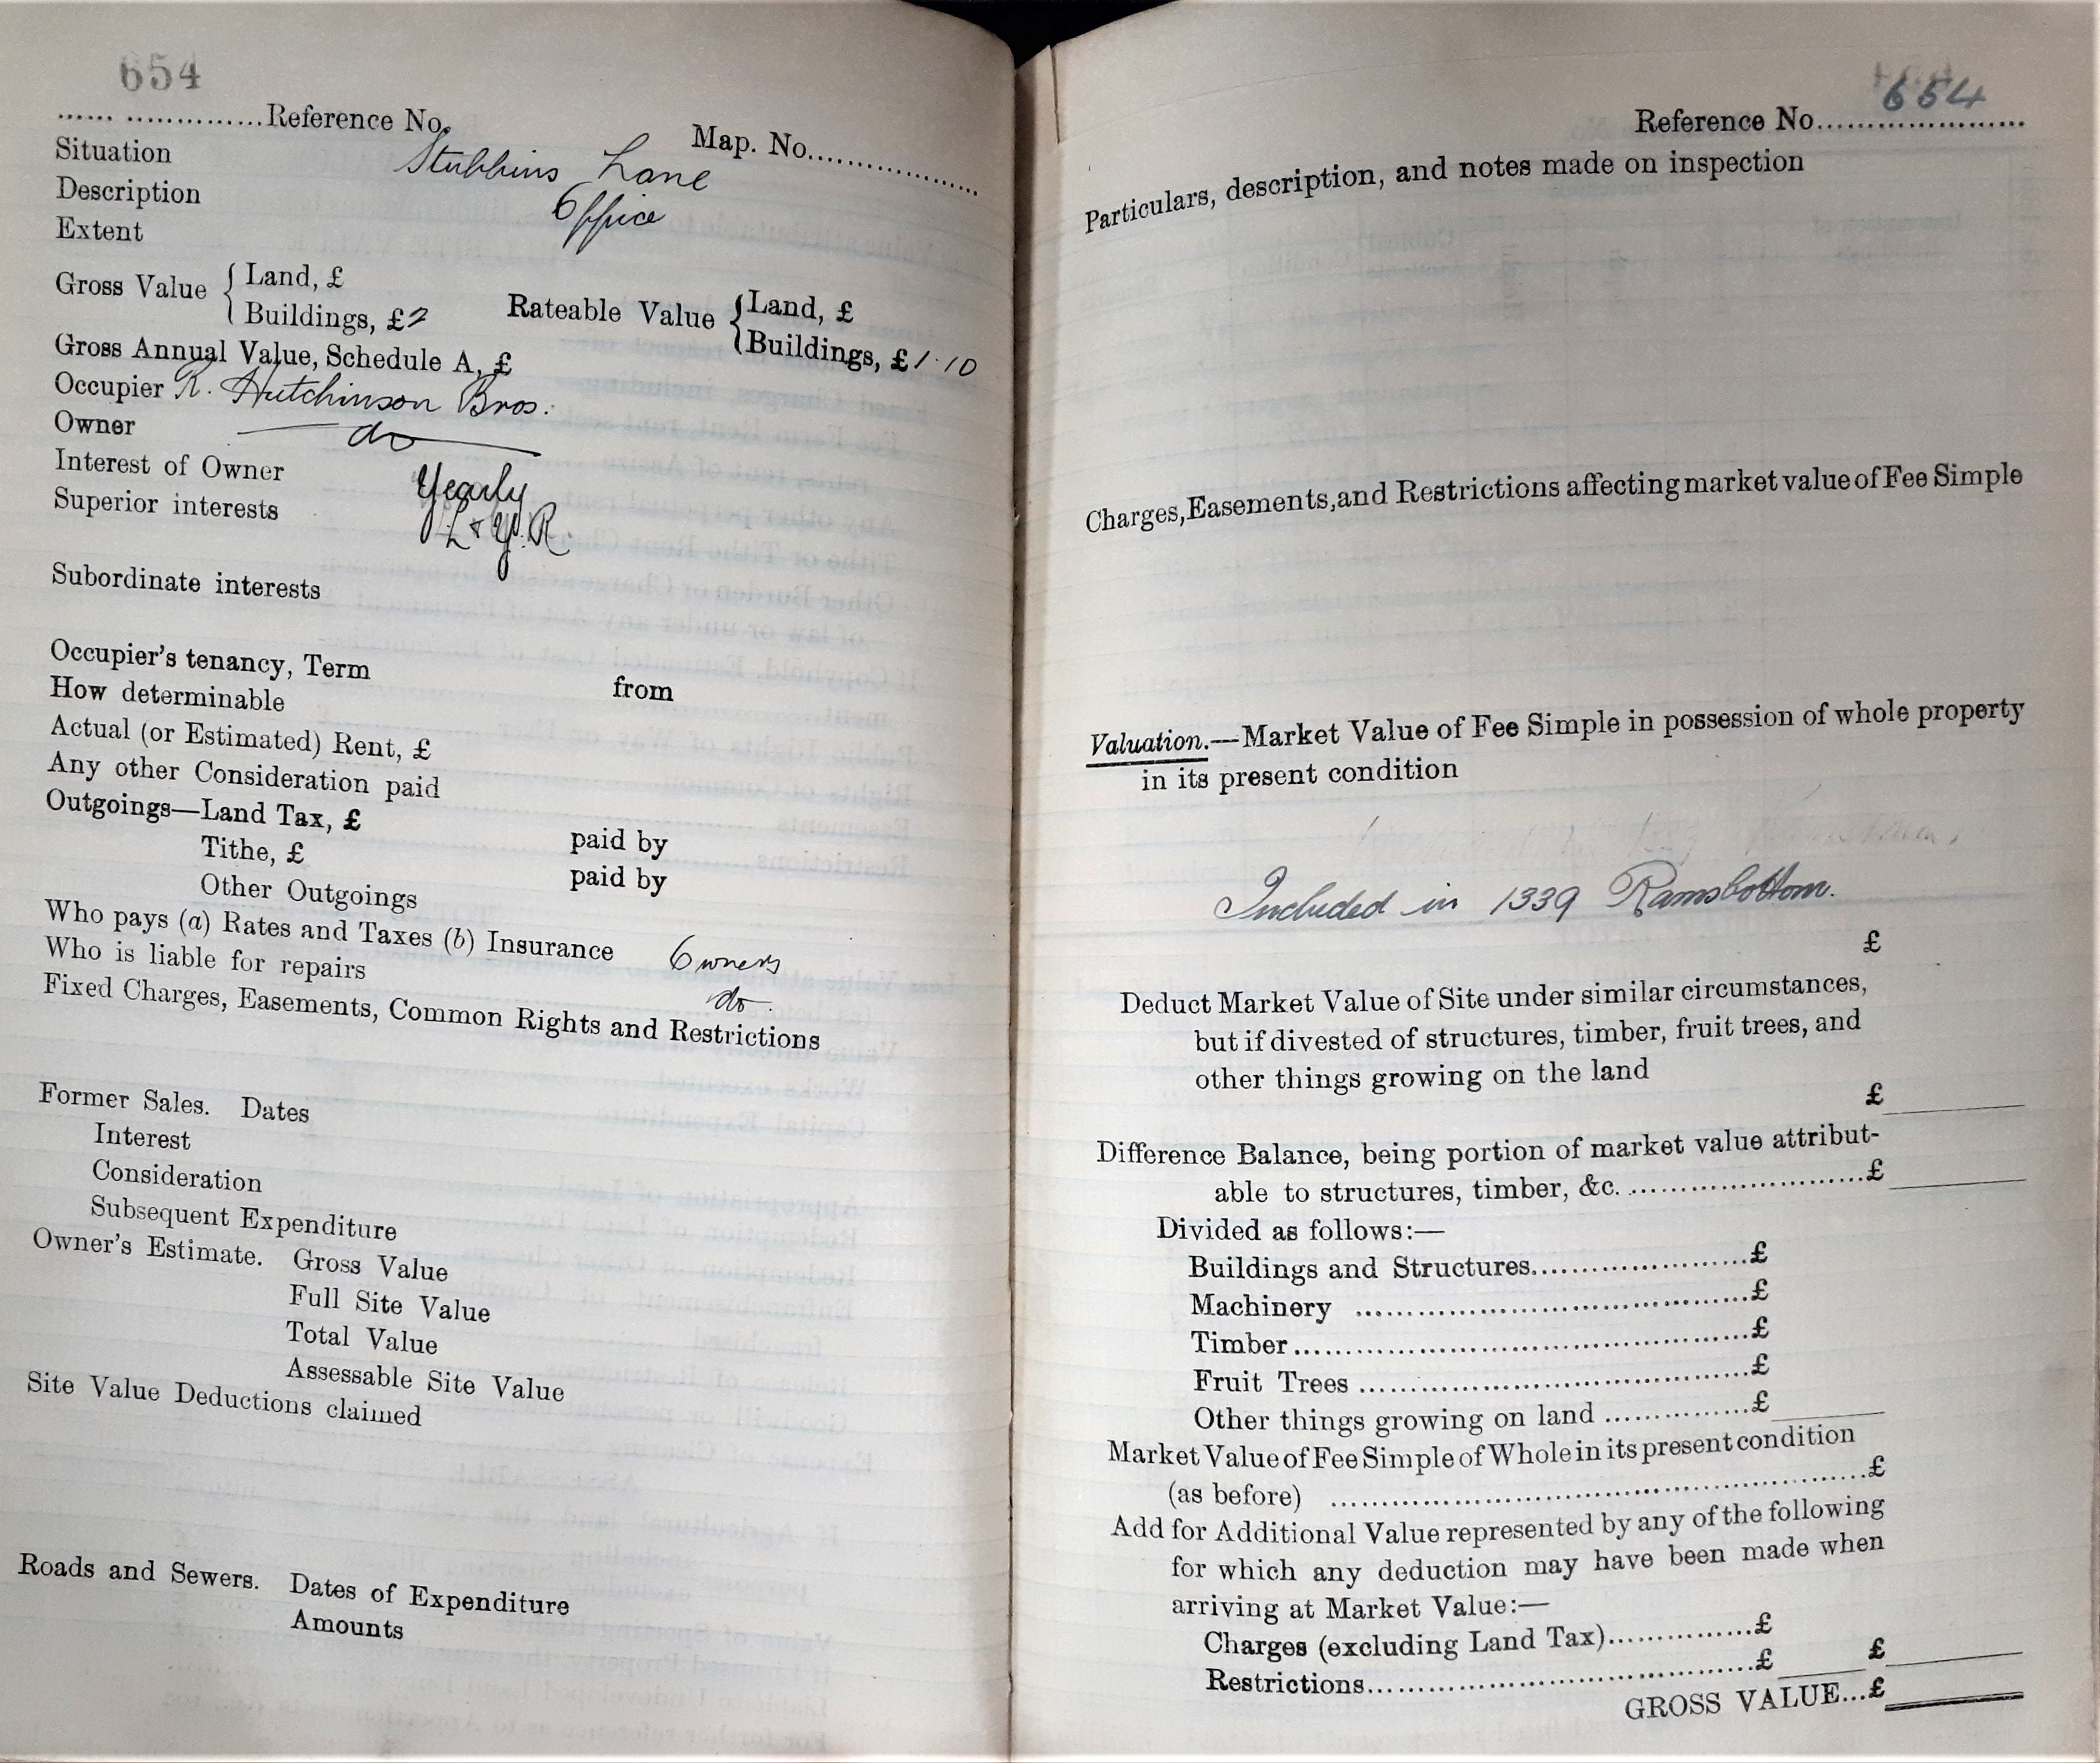 654
...... ..............Reference No. Map. No.....................
Situation Stubbins Lane
Description Office
Extent
Gross Value { Land, £
Buildings, £2
Rateable Value { Land, £
Buildings, £1.10
Gross Annual Value, Schedule A, £
Occupier R. Hutchinson Bros.
Owner do
Interest of Owner Yearly
Superior interests L & Y. R
Subordinate interests
Occupier's tenancy, Term from
How determinable
Actual (or Estimated) Rent, £
Any other Consideration paid
Outgoings—Land Tax, £ paid by
Tithe, £ paid by
Other Outgoings
Who pays (a) Rates and Taxes (b) Insurance Owners
Who is liable for repairs do.
Fixed Charges, Easements, Common Rights and Restrictions
Former Sales. Dates
Interest
Consideration
Subsequent Expenditure
Owner's Estimate. Gross Value
Full Site Value
Total Value
Assessable Site Value
Site Value Deductions claimed
Roads and Sewers. Dates of Expenditure
Amounts
654
Reference No.....................
Particulars, description, and notes made on inspection
Charges, Easements, and Restrictions affecting market value of Fee Simple
Valuation.—Market Value of Fee Simple in possession of whole property
in its present condition
Included in 1339 Ramsbottom.
£
Deduct Market Value of Site under similar circumstances,
but if divested of structures, timber, fruit trees, and
other things growing on the land
£
Difference Balance, being portion of market value attribut-
able to structures, timber, &c. .........................£
Divided as follows:—
Buildings and Structures.......................£
Machinery .........................................£
Timber................................................£
Fruit Trees .........................................£
Other things growing on land ...............£
Market Value of Fee Simple of Whole in its present condition
(as before) .......................................................£
Add for Additional Value represented by any of the following
for which any deduction may have been made when
arriving at Market Value:—
Charges (excluding Land Tax)...............£
Restrictions..........................................£ £
GROSS VALUE...£